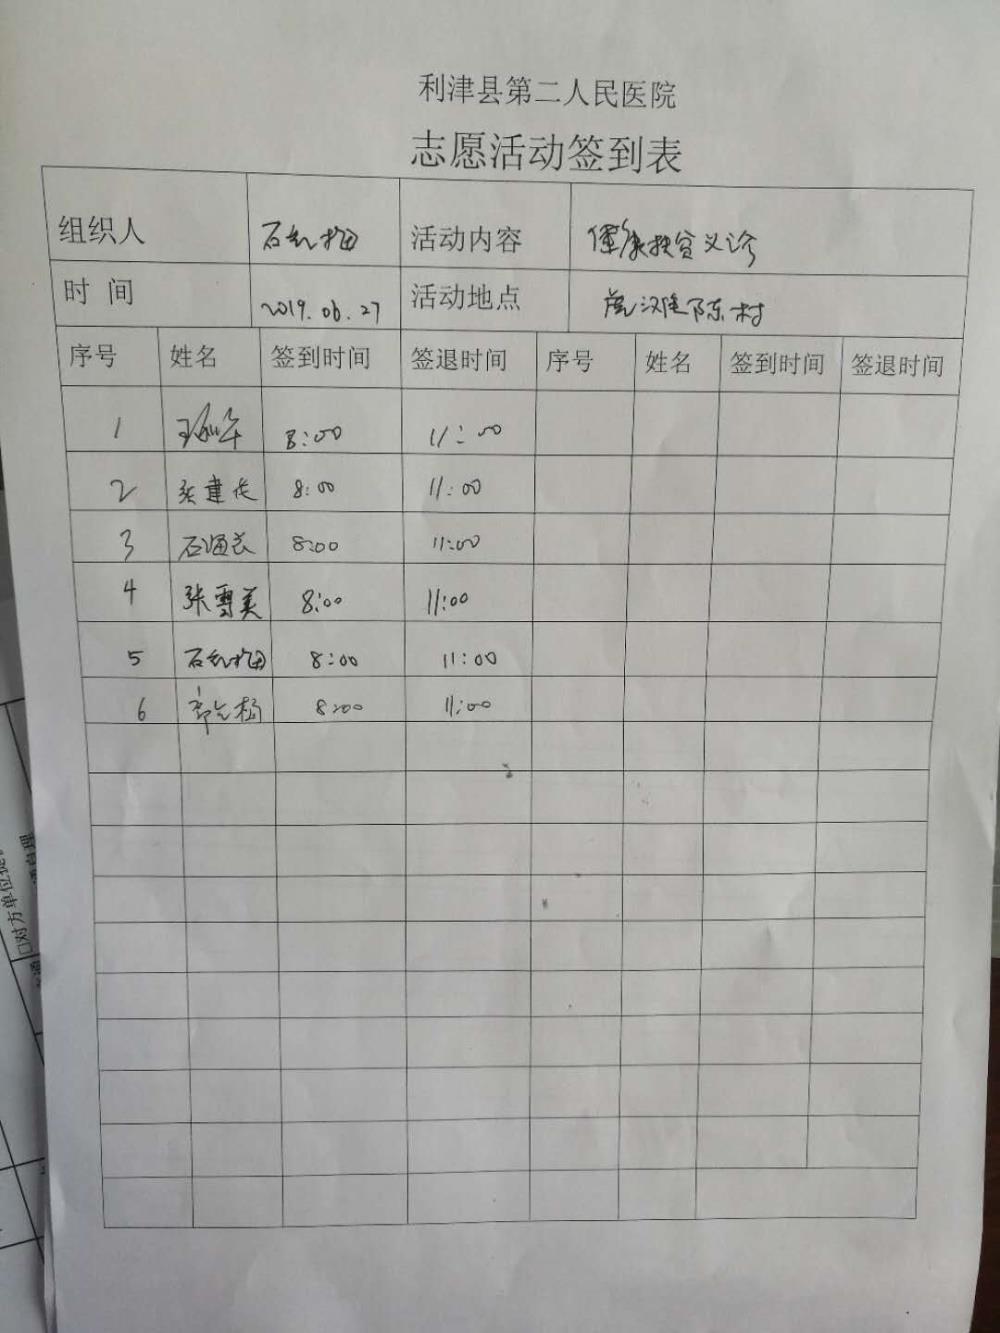 利津县第二人民医院
志愿活动签到表
组织人 石红梅 活动内容 健康扶贫义诊
时 间 2019.06.27 活动地点 虎滩陈村
序号 姓名 签到时间 签退时间 序号 姓名 签到时间 签退时间
1 8:00 11:00
2 张建 8:00 11:00
3 石 8:00 11:00
4 张雪美 8:00 11:00
5 石红梅 8:00 11:00
6 8:00 11:00
口对方单位